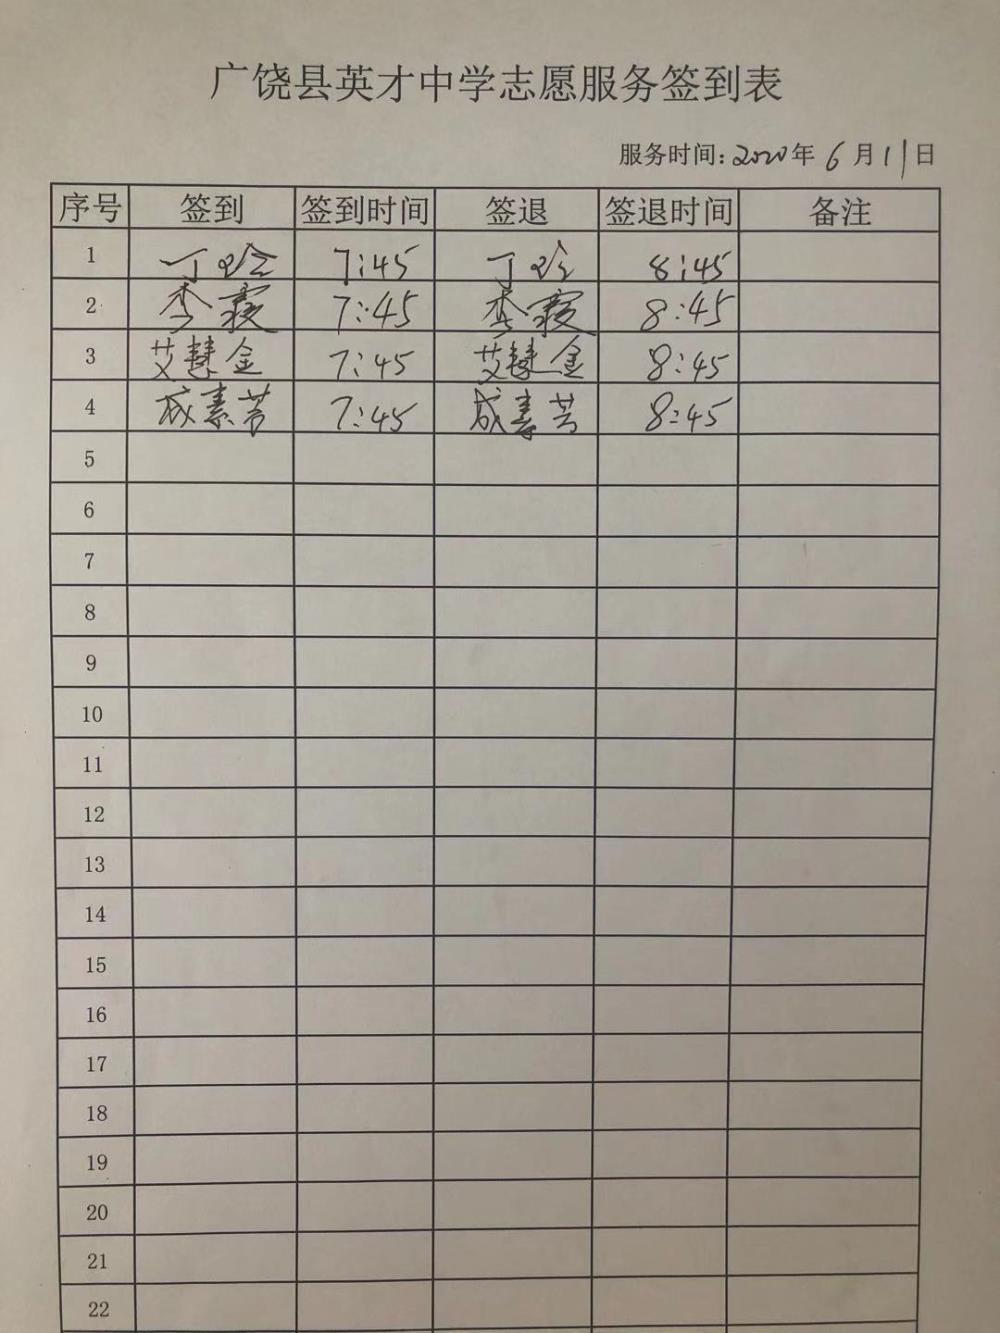 广饶县英才中学志愿服务签到表
服务时间:2020年6月11日
序号 签到 签到时间 签退 签退时间 备注
1 丁玲 7:45 丁玲 8:45
2 李霞 7:45 李霞 8:45
3 艾慧金 7:45 艾慧金 8:45
4 成素芳 7:45 成素芳 8:45
5
6
7
8
9
10
11
12
13
14
15
16
17
18
19
20
21
22